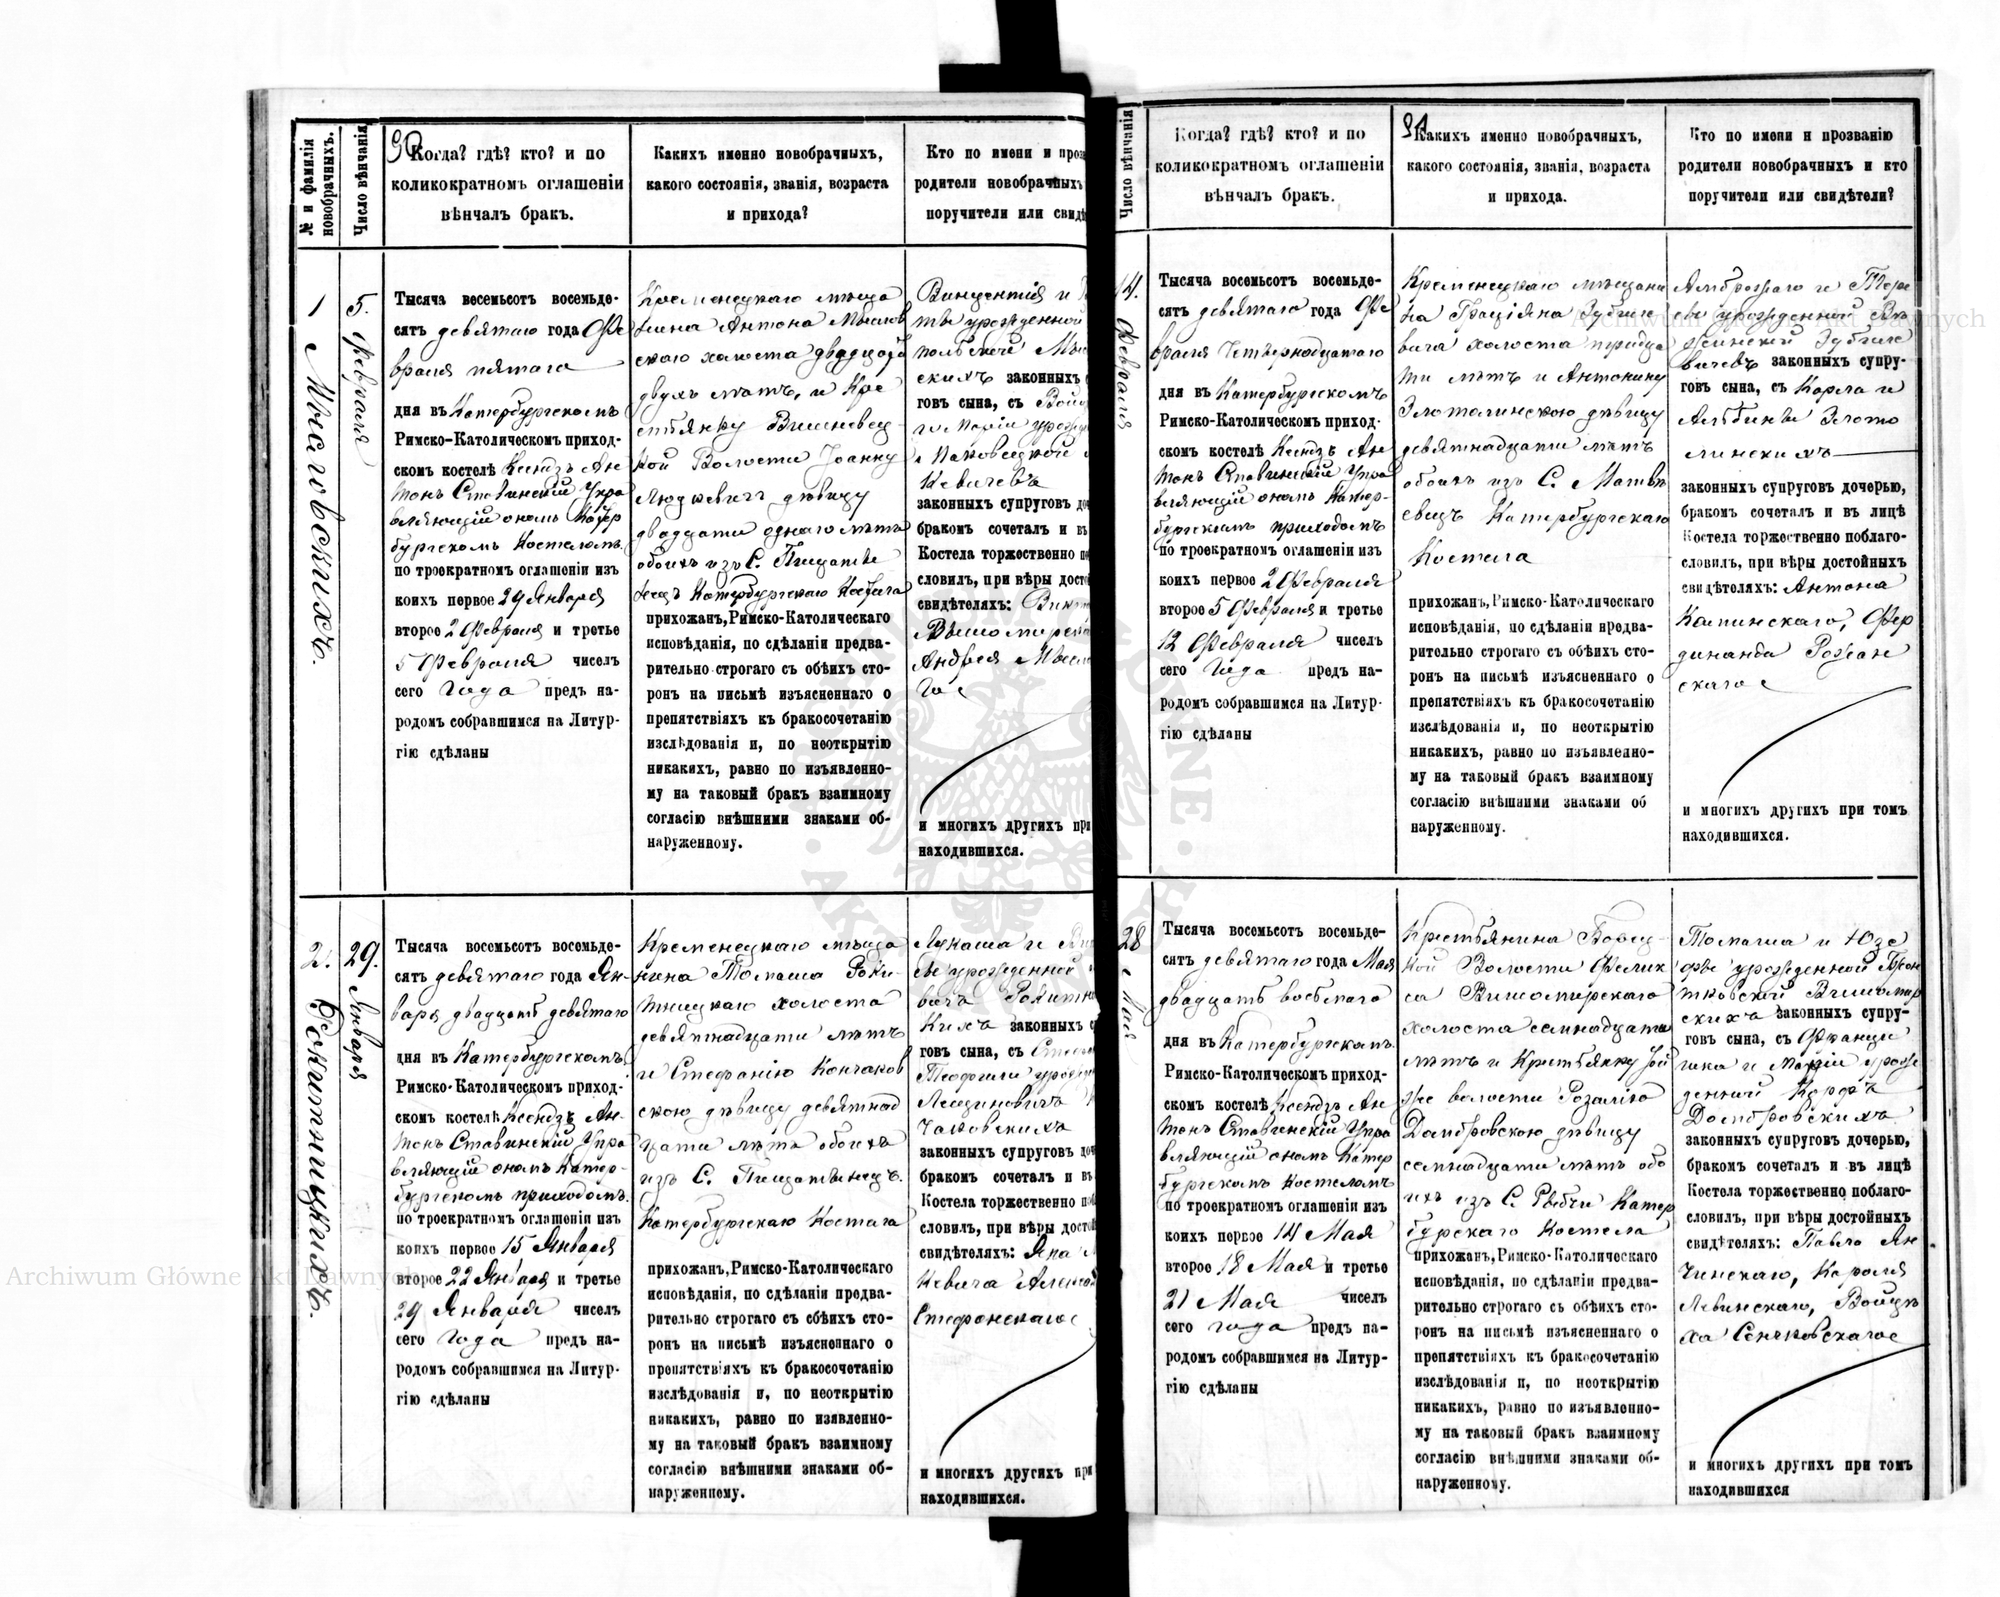 № и фамилія новобрачныхъ.
Число вѣнчанія
90
Когда? гдѣ? кто? и по
коликократномъ оглашеніи
вѣнчалъ бракъ.
Какихъ именно новобрачныхъ,
какого состоянія, званія, возраста
и прихода?
Кто по имени и проз
родители новобрачныхъ
поручители или свидѣ
1 Мысловскихъ.
5. Февраля
Тысяча весемьсотъ восемьде-
сятъ девятаго года Фе
враля пятаго
дня въ Катербургскомъ
Римско-Католическомъ приход-
скомъ костелѣ Ксендзъ Ан
тонъ Ставинскій Упра
вляющій онымъ Катер
бургскомъ Костеломъ
по троекратномъ оглашеніи изъ
коихъ первое 29 Января
второе 2 Февраля и третье
5 Февраля чиселъ
сего года предъ на-
родомъ собравшимся на Литур-
гію сдѣланы
Кременецкаго мѣща
нина Антона Мыслов
скаго холоста двадцати
двухъ лѣтъ, и Кре
стьянку Вишневец-
кой Волости Іоанну
дѣвицу
двадцати одного лѣтъ
обоихъ изъ С. Пищатин
Катербургскаго Костела
прихожанъ, Римско-Католическаго
исповѣданія, по сдѣланіи предва-
рительно строгаго съ обѣихъ сто-
ронъ на письмѣ изъясненнаго о
препятствіяхъ къ бракосочетанію
изслѣдованія и, по неоткрытію
никакихъ, равно по изъявленно-
му на таковый бракъ взаимному
согласію внѣшними знаками об-
наруженному.
Винцентія и
ты урожденной
Мы
скихъ законныхъ
говъ сына, съ Вой
Маріи урожд
кевичевъ
законныхъ супруговъ до
бракомъ сочеталъ и въ
Костела торжественно по
словилъ, при вѣры дост
свидѣтеляхъ: Викт
Вышомирск
Андрея Мысл
го
и многихъ другихъ при
находившихся.
2. Рокитницкихъ.
29. Января
Тысяча восемьсотъ восемьде-
сятъ девятаго года Ян-
варя двадцать девятаго
дня въ Катербургскомъ
Римско-Католическомъ приход-
скомъ костелѣ Ксендзъ Ан-
тонъ Ставинскій Упра
вляющій онымъ Катер-
бургскомъ приходомъ.
по троекратномъ оглашеніи изъ
коихъ первое 15 Января
второе 22 Января и третье
29 Января чиселъ
сего года предъ на-
родомъ собравшимся на Литур-
гію сдѣланы
Кременецкаго мѣща
нина Томаша Роки-
тницкаго холоста
девятнадцати лѣтъ
и Стефанію Кончаков
скою дѣвицу девятнад
цати лѣтъ обоихъ
изъ С. Пищатинецъ.
Катербургскаго Костела
прихожанъ, Римско-Католическаго
исповѣданія, по сдѣланіи предва-
рительно строгаго съ обѣихъ сто-
ронъ на письмѣ изъясненнаго о
препятствіяхъ къ бракосочетанію
изслѣдованія и, по неоткрытію
никакихъ, равно по изявленно-
му на таковый бракъ взаимному
согласію внѣшними знаками об-
наруженному.
Лукаша и
урожденной
вичъ Рокитни
кихъ законныхъ с
говъ сына, съ
Теофили урож
Лещиновичъ
чаковскихъ
законныхъ супруговъ доч
бракомъ сочеталъ и въ
Костела торжественно по
словилъ, при вѣры дост
свидѣтеляхъ: Яна
кевича
Стефанскаго
и многихъ другихъ при
находившихся.
Число вѣнчанія
Когда? гдѣ? кто? и по
коликократномъ оглашеніи
вѣнчалъ бракъ.
91
Какихъ именно новобрачныхъ,
какого состоянія, званія, возраста
и прихода.
Кто по имени и прозванію
родители новобрачныхъ и кто
поручители или свидѣтели?
14. Февраля
Тысяча восемьсотъ восемьде-
сятъ девятаго года Фе
враля четырнадцатаго
дня въ Катербургскомъ
Римско-Католическомъ приход-
скомъ костелѣ Ксендзъ Ан-
тонъ Ставинскій Упра
вляющій онымъ Катер-
бургскимъ приходомъ
по троекратномъ оглашеніи изъ
коихъ первое 2 Февраля
второе 5 Февраля и третье
12 Февраля чиселъ
сего года предъ на-
родомъ собравшимся на Литур-
гію сдѣланы
Кременецкаго мѣщани
на Граціяна Зубкие
вича холоста тридца
ти лѣтъ и Антонину
Злотолинскою дѣвицу
девятнадцати лѣтъ
обоихъ изъ С. Матвѣ
евецъ Катербургскаго
Костела
прихожанъ, Римско-Католическаго
исповѣданія, по сдѣланіи предва-
рительно строгаго съ обѣихъ сто-
ронъ на письмѣ изъясненнаго о
препятствіяхъ къ бракосочетанію
изслѣдованія и, по неоткрытію
никакихъ, равно по изъявленно-
му на таковый бракъ взаимному
согласію внѣшними знаками об
наруженному.
Амброжаго и Тере
сы урожденной
Зубкие
вичевъ законныхъ супру-
говъ сына, съ Карла и
Альбины Злото
линскихъ
законныхъ супруговъ дочерью,
бракомъ сочеталъ и въ лицѣ
Костела торжественно поблаго-
словилъ, при вѣры достойныхъ
свидѣтеляхъ: Антона
Капинскаго, Фер
динанда Рожан
скаго
и многихъ другихъ при томъ
находившихся.
28 Мая
Тысяча восемьсотъ восемьде-
сятъ девятаго года Мая
двадцать восьмаго
дня въ Катербургскомъ
Римско-Католическомъ приход-
скомъ костелѣ Ксендзъ Ан
тонъ Ставинскій Упра
вляющій онымъ Катер
бургскомъ костеломъ
по троекратномъ оглашеніи изъ
коихъ первое 14 Мая
второе 18 Мая и третье
21 Мая чиселъ
сего года предъ на-
родомъ собравшимся на Литур-
гію сдѣланы
Крестьянина Борец-
кой Волости Феликъ
са Вишомирскаго
холоста семнадцати
лѣтъ и Крестьянку той
же волости Розалію
Домбровскою дѣвицу
семнадцати лѣтъ обо
ихъ изъ С. Рыбчи Катер
бурскаго Костела
прихожанъ, Римско-Католическаго
исповѣданія, по сдѣланіи предва-
рительно строгаго съ обѣихъ сто-
ронъ на письмѣ изъясненнаго о
препятствіяхъ къ бракосочетанію
изслѣдованія и, по неоткрытію
никакихъ, равно по изъявленно-
му на таковый бракъ взаимному
согласію внѣшними знаками об-
наруженному.
Томаша и Юзе
фы урожденной Брон
тковской Вишомир
скихъ законныхъ супру-
говъ сына, съ Франци
шка и Маріи урож
денной Корфъ
Домбровскихъ
законныхъ супруговъ дочерью,
бракомъ сочеталъ и въ лицѣ
Костела торжественно поблаго-
словилъ, при вѣры достойныхъ
свидѣтеляхъ: Павла Ян
чинскаго, Кароля
Левинскаго, Войцѣ
ха Сенчковскаго
и многихъ другихъ при томъ
находившихся
Archiwum Główne Akt Dawnych
Archiwum Główne Akt Dawnych